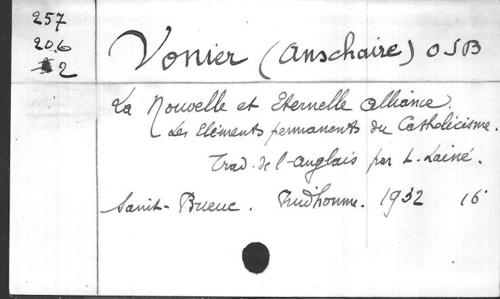 257
206
2
Vonier (Anschaire) OSB
La Nouvelle et Eternelle Alliance.
Les Eléments permanents du Catholicisme.
Trad. de l'anglais par L. Lainé.
Saint-Brieuc. Prudhomme. 1932 16°